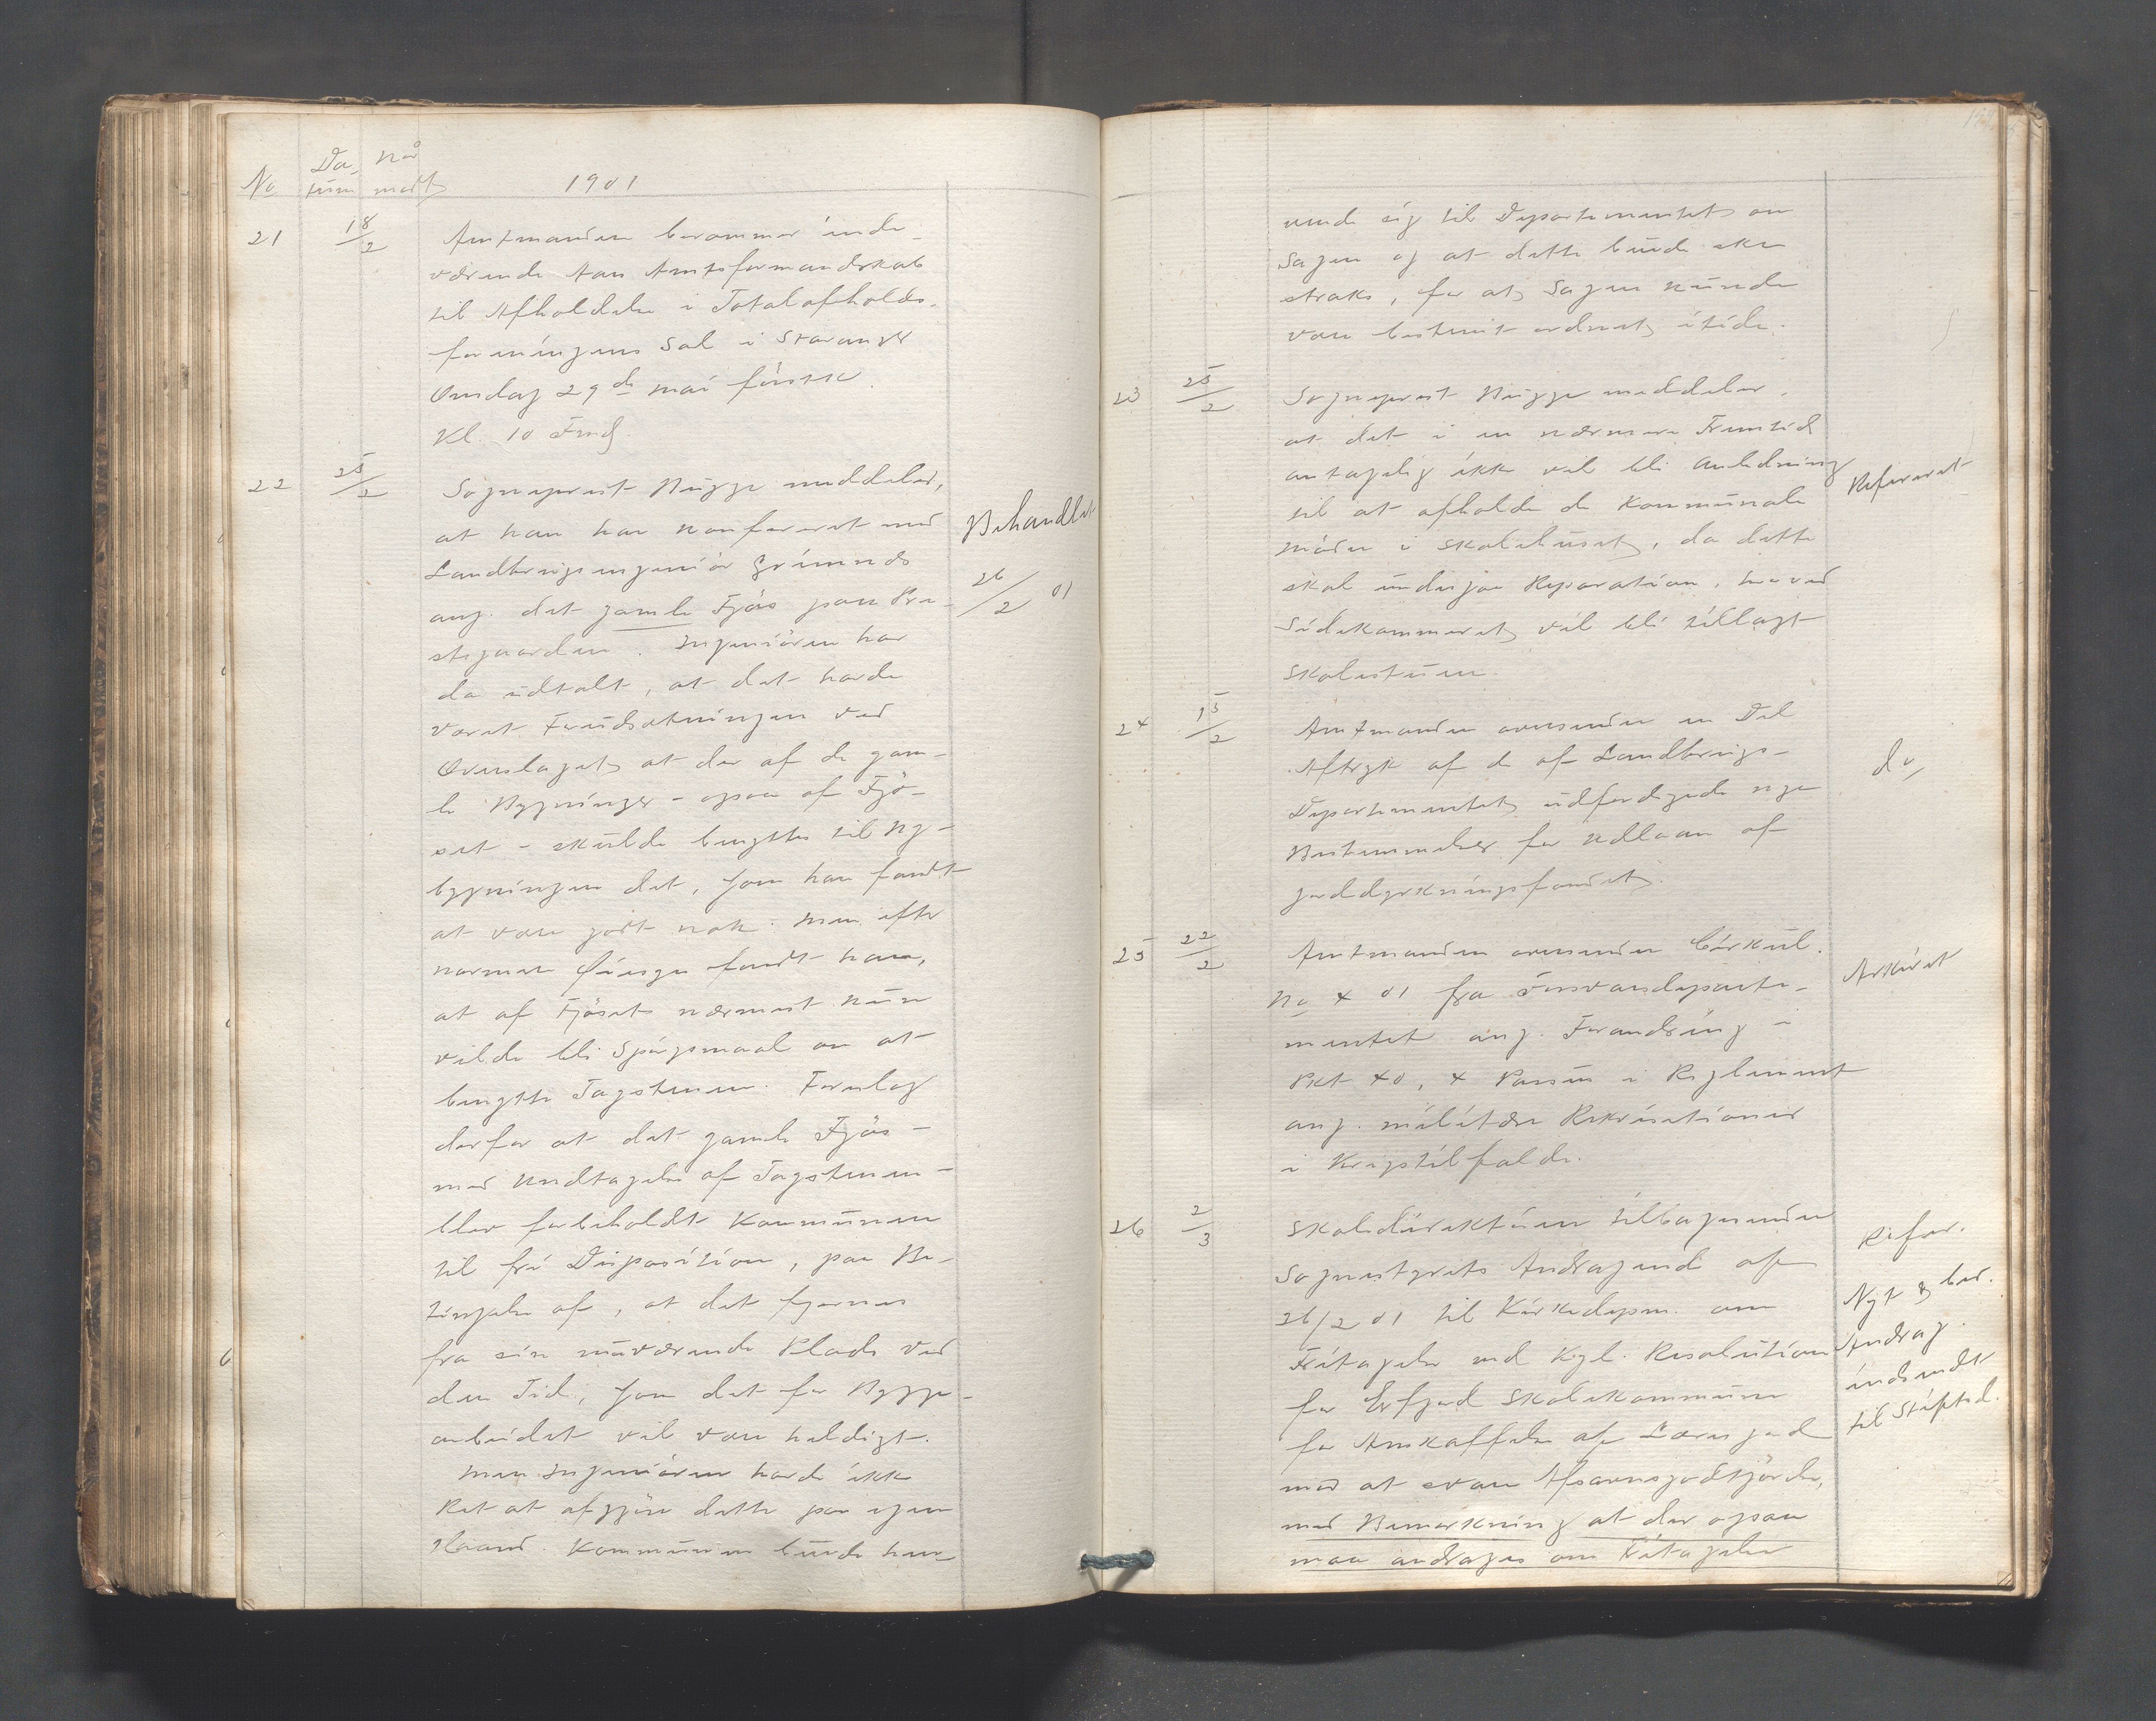 No Da- når
tum modt 1901
21 18/2 Amtmanden berammer inde-
værende Aars Amtsformandskab
til Afholdelse i Totalafholds-
foreningens Sal i Stavanger
Onsdag 29de mai førstk.
Kl. 10 Fmd.
22 25/2 Sogneprest Bugge meddeler,
at han har konfereret med
Landbrugsingeniør Grimnes
ang. det gamle Fjøs paa Pre-
stegaarden. Ingeniøren har
da udtalt, at det havde
været Forudsætningen ved
Overslaget at der af de gam-
le Bygninger - ogsaa af Fjø-
set - skulde benyttes til Ny-
bygningen det, som han fandt
at være godt nok. Men efter
nærmere Eftersyn fandt han,
at af Fjøset nærmest kun
vilde bli Spørgsmaal om at
benytte Tagstenen. Foreslog
derfor at det gamle Fjøs -
med Undtagelse af Tagstenen -
blev forbeholdt Kommunen
til fri Disposition, paa Be-
tingelse af, at det fjernes
fra sin nuværende Plads ved
den Tid, som det for Bygge-
arbeidet vil være heldigt.
Men Ingeniøren havde ikke
Ret at afgjøre dette paa egen
Haand. Kommunen burde hen-
Behandlet
26/2 01
vende sig til Departementet om
Sagen og at dette burde ske
straks, for at Sagen kunde
være bestemt ordnet itide.
23 25/2 Sogneprest Bugge meddeler,
at det i en nærmere Fremtid
antagelig ikke vil bli Anledning
til at afholde de kommunale
møder i Skolehuset, da dette
skal undergaa Reparation, hvorved
Sidekammeret vil bli tillagt
Skolestuen.
Refereret
24 15/2 Amtmanden oversender en Del
Aftryk af de af Landbrugs-
Departementet udferdigede nye
Bestemmelser for Udlaan af
Jorddyrkningsfondet.
do,
25 22/2 Amtmanden oversender Cirkul.
No 4 01 fra Forsvarsdeparte-
mentet ang. Forandring i
Pkt 40, 4 Passus i Reglement
ang. militære Rekvisitioner
i Krigstilfælde.
Arkivet
26 2/3 Skoledirektøren tilbagesender
Sognestyrets Andragende af
26/2 01 til Kirkedepm. om
Fritagelse ved Kgl. Resolution
for Erfjord Skolekommune
for Anskaffelse af Lærerjord
med at svare Afsavnsgodtgjørelse,
med Bemerkning at der ogsaa
maa andrages om Fritagelse
Refer.
Nyt &
Andrag.
indsendt
til Stiftsd.